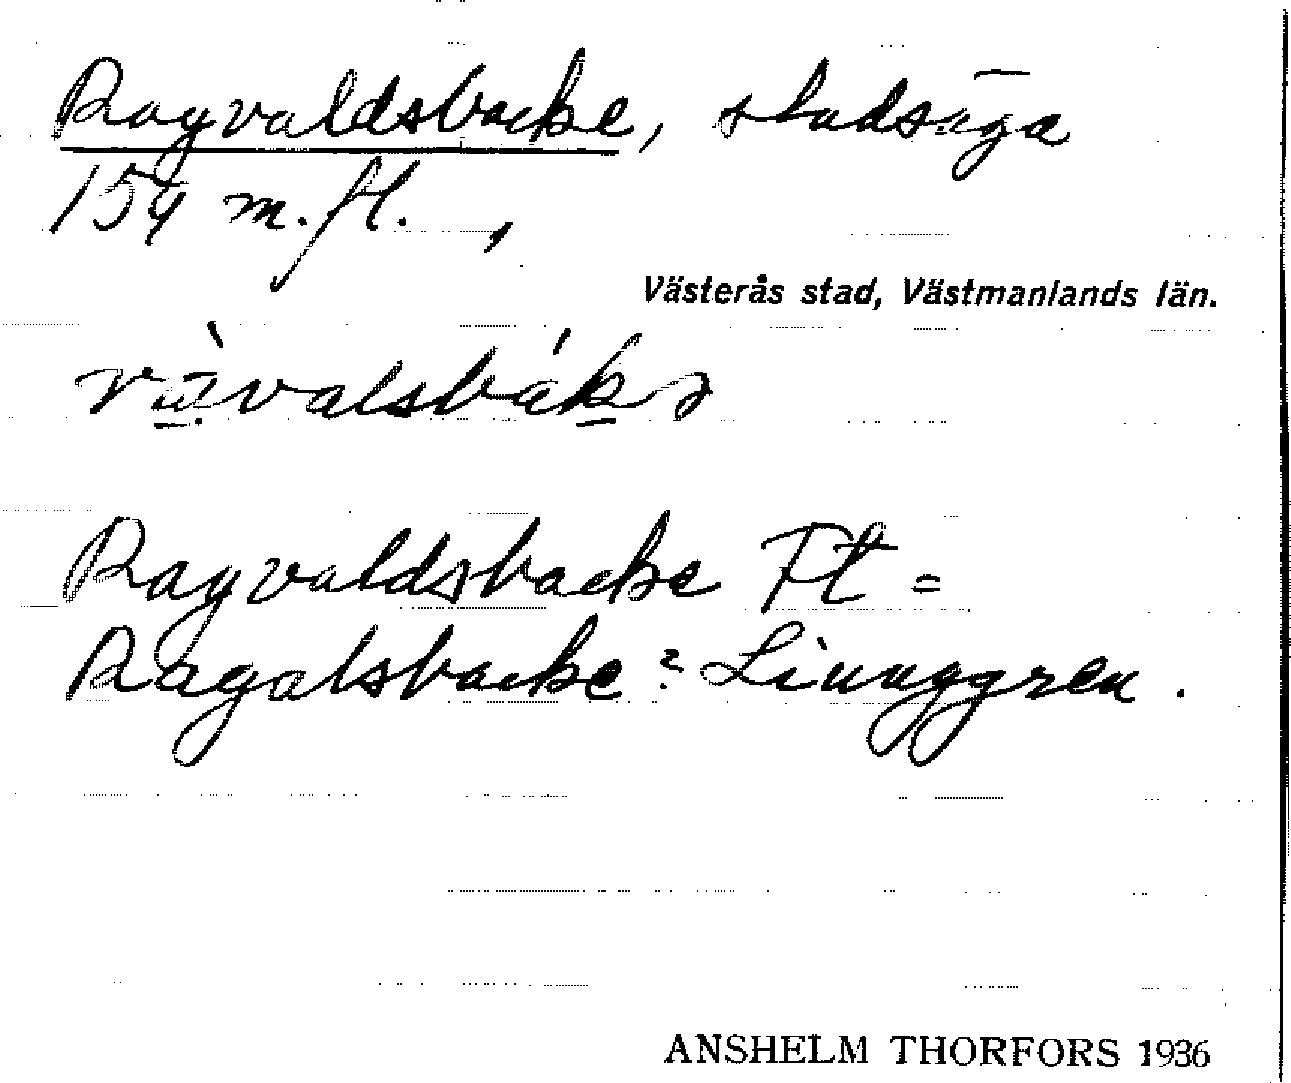 Ragvaldsbacke, stadsäga
154 m. fl. ,
Västerås stad, Västmanlands län.
Ragvaldsbacke Ft =
Ragalsbacke? Linnggren.
ANSHELM THORFORS 1936